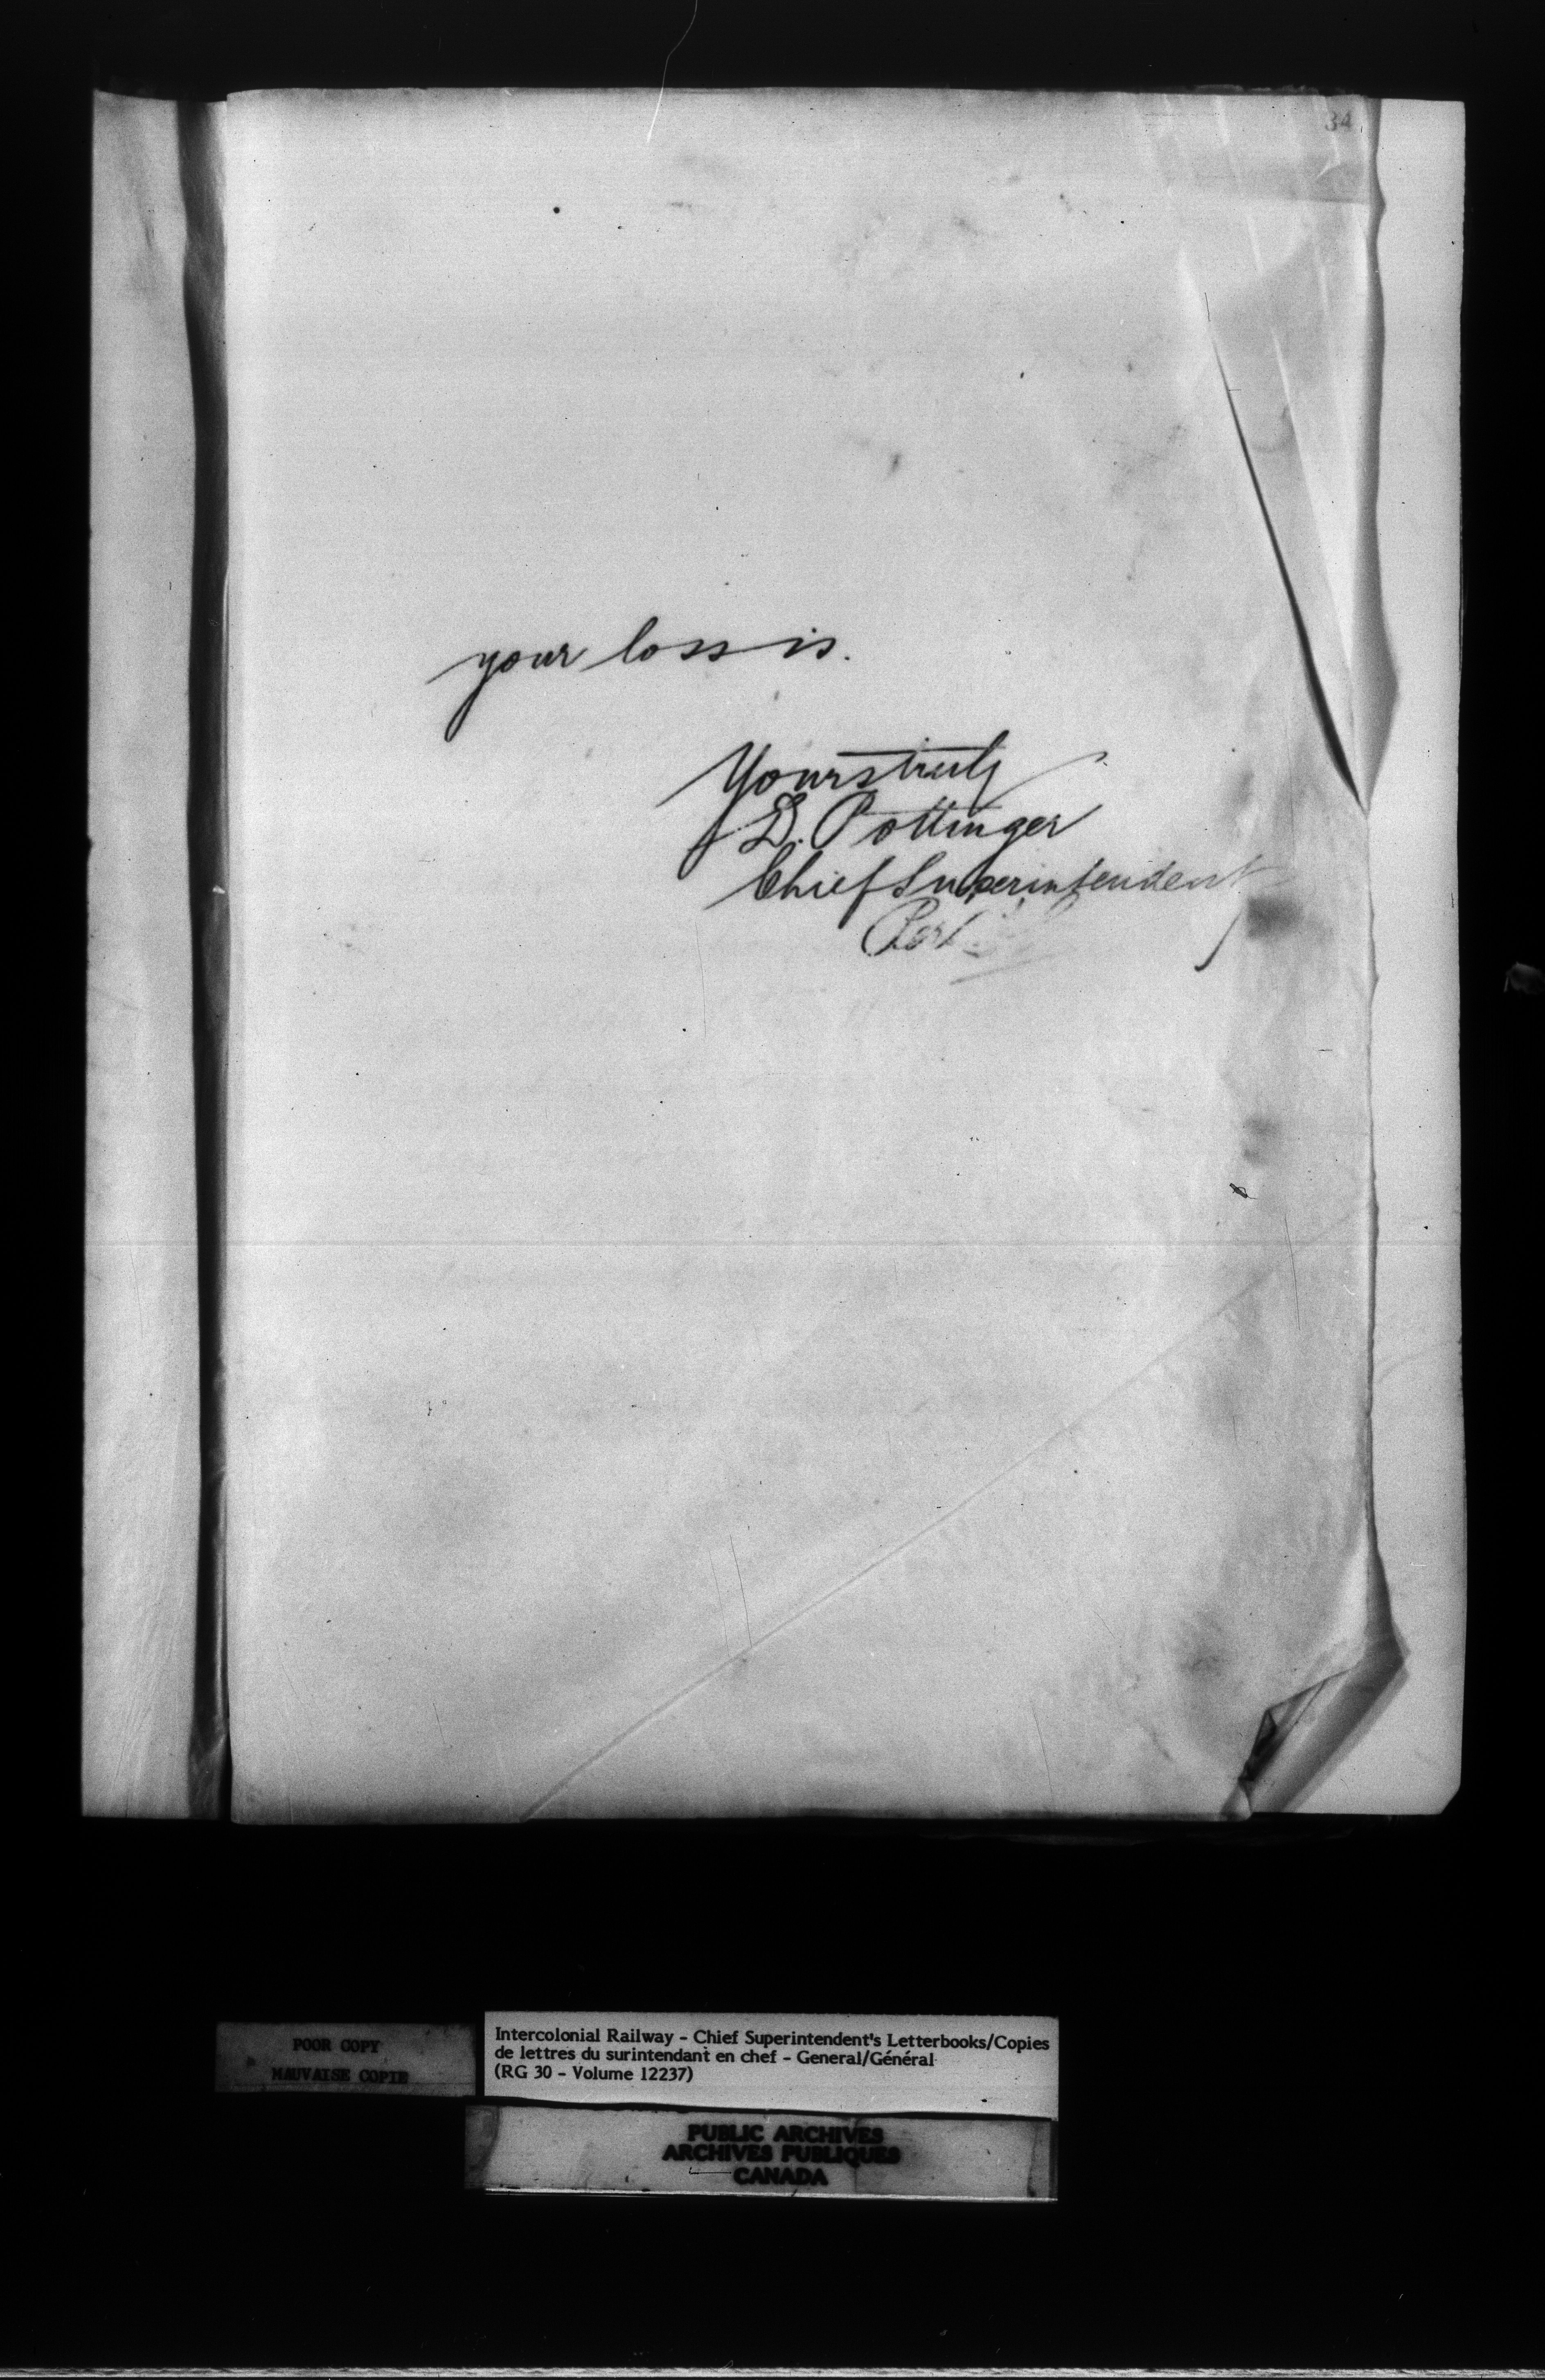 34
your loss is.
Yours truly
D. Pottinger
Chief Superintendent
POOR COPY
MAUVAISE COPIE
Intercolonial Railway - Chief Superintendent's Letterbooks/Copies
de lettres du surintendant en chef - General/Général
(RG 30 - Volume 12237)
PUBLIC ARCHIVES
ARCHIVES PUBLIQUES
CANADA